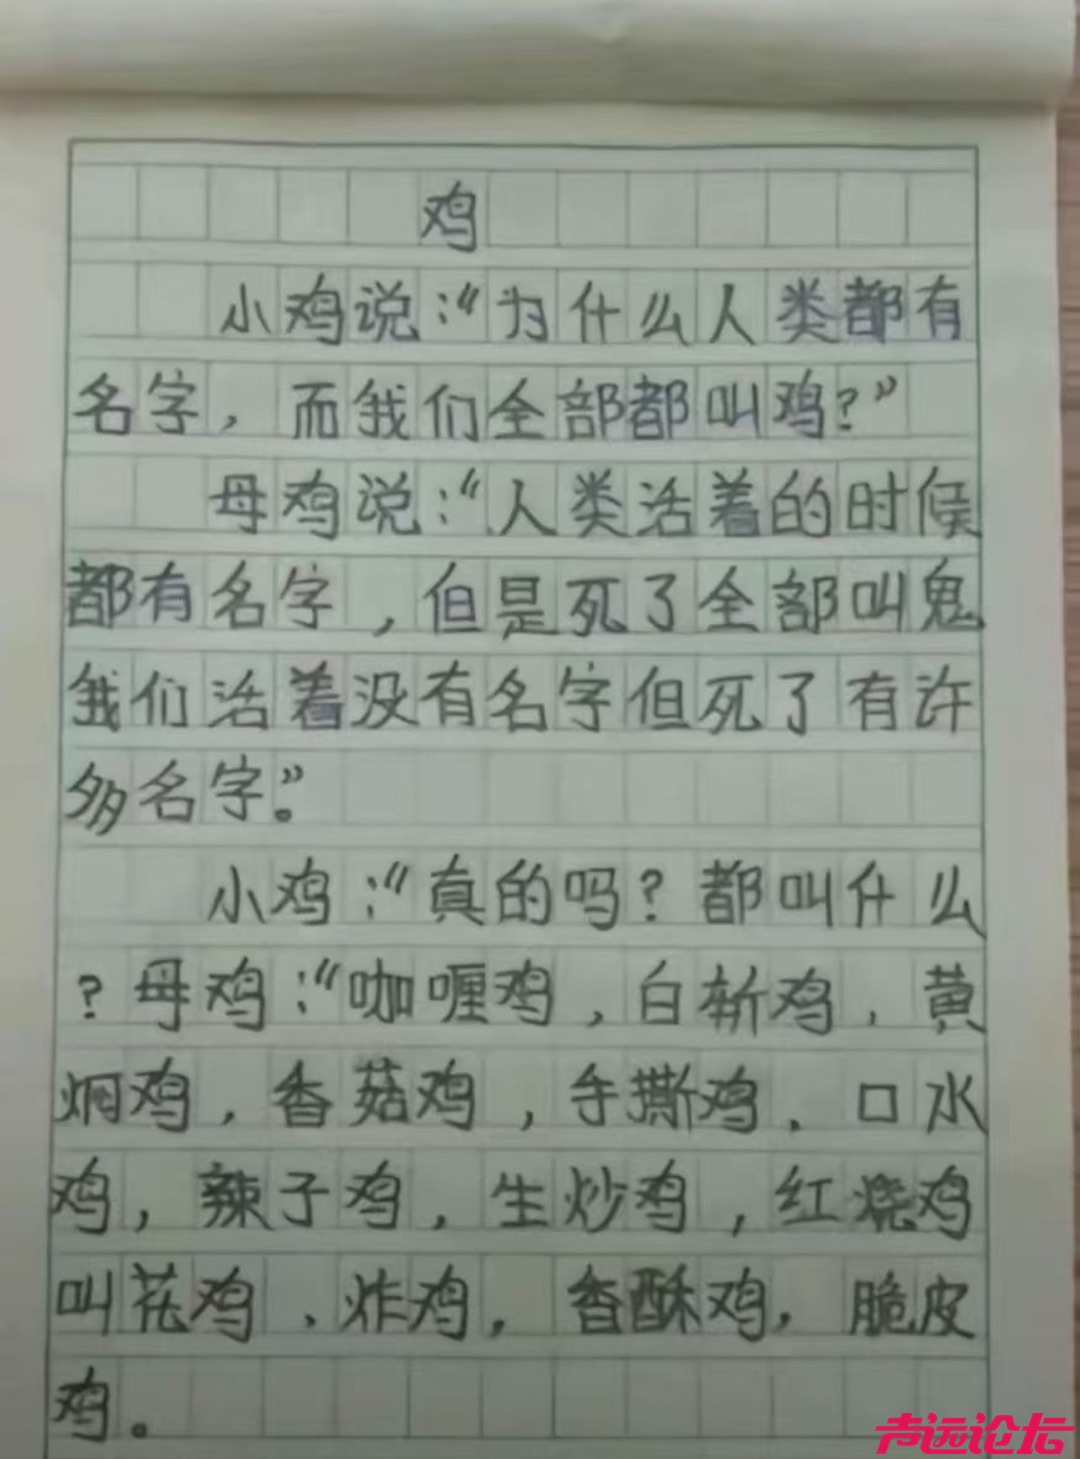 鸡
小鸡说:“为什么人类都有
名字,而我们全部都叫鸡?”
母鸡说:“人类活着的时候
都有名字,但是死了全部叫鬼
我们活着没有名字但死了有许
多名字。”
小鸡:“真的吗?都叫什么
?母鸡:“咖喱鸡,白斩鸡,黄
焖鸡,香菇鸡,手撕鸡,口水
鸡,辣子鸡,生炒鸡,红烧鸡
叫花鸡、炸鸡,香酥鸡,脆皮
鸡。
声远论坛